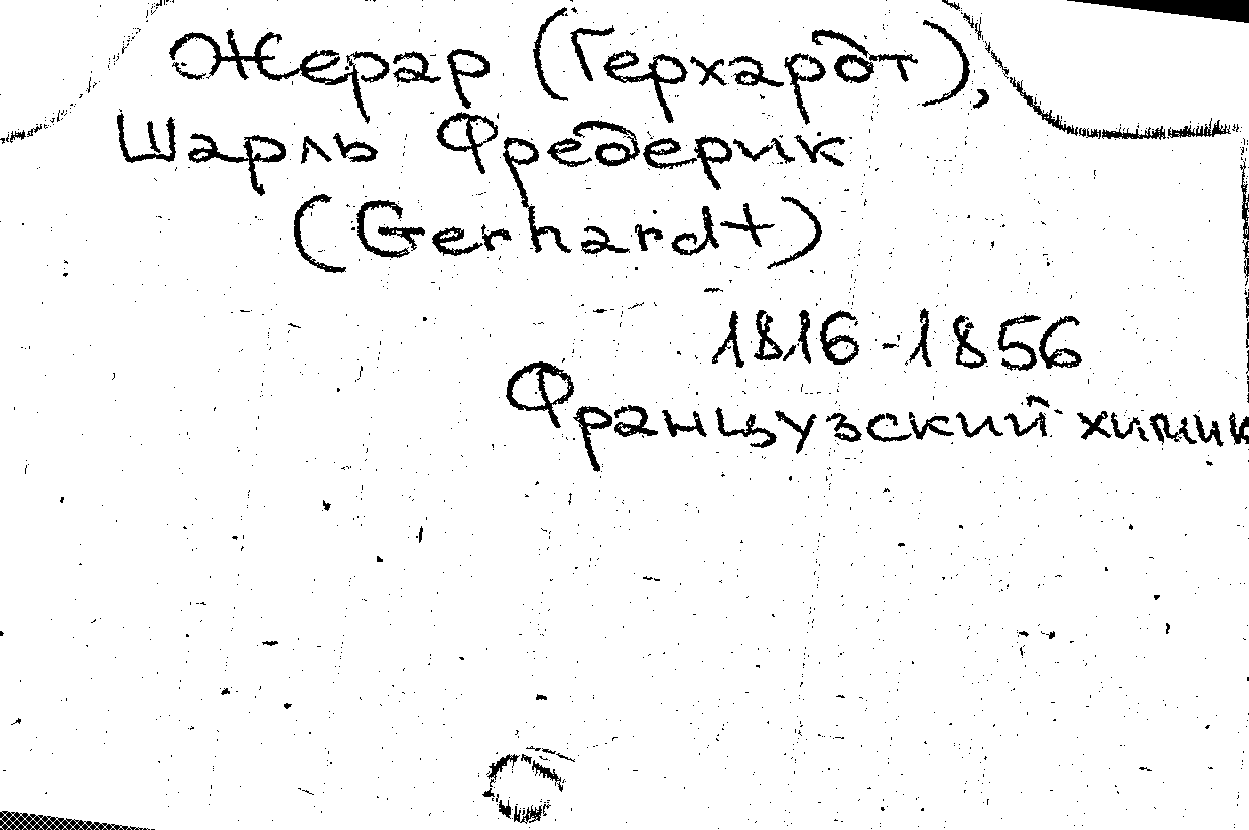 Жерар (Герхардт),
Шарль Фредерик
(Gerhardt)
1816-1856
Французский химик